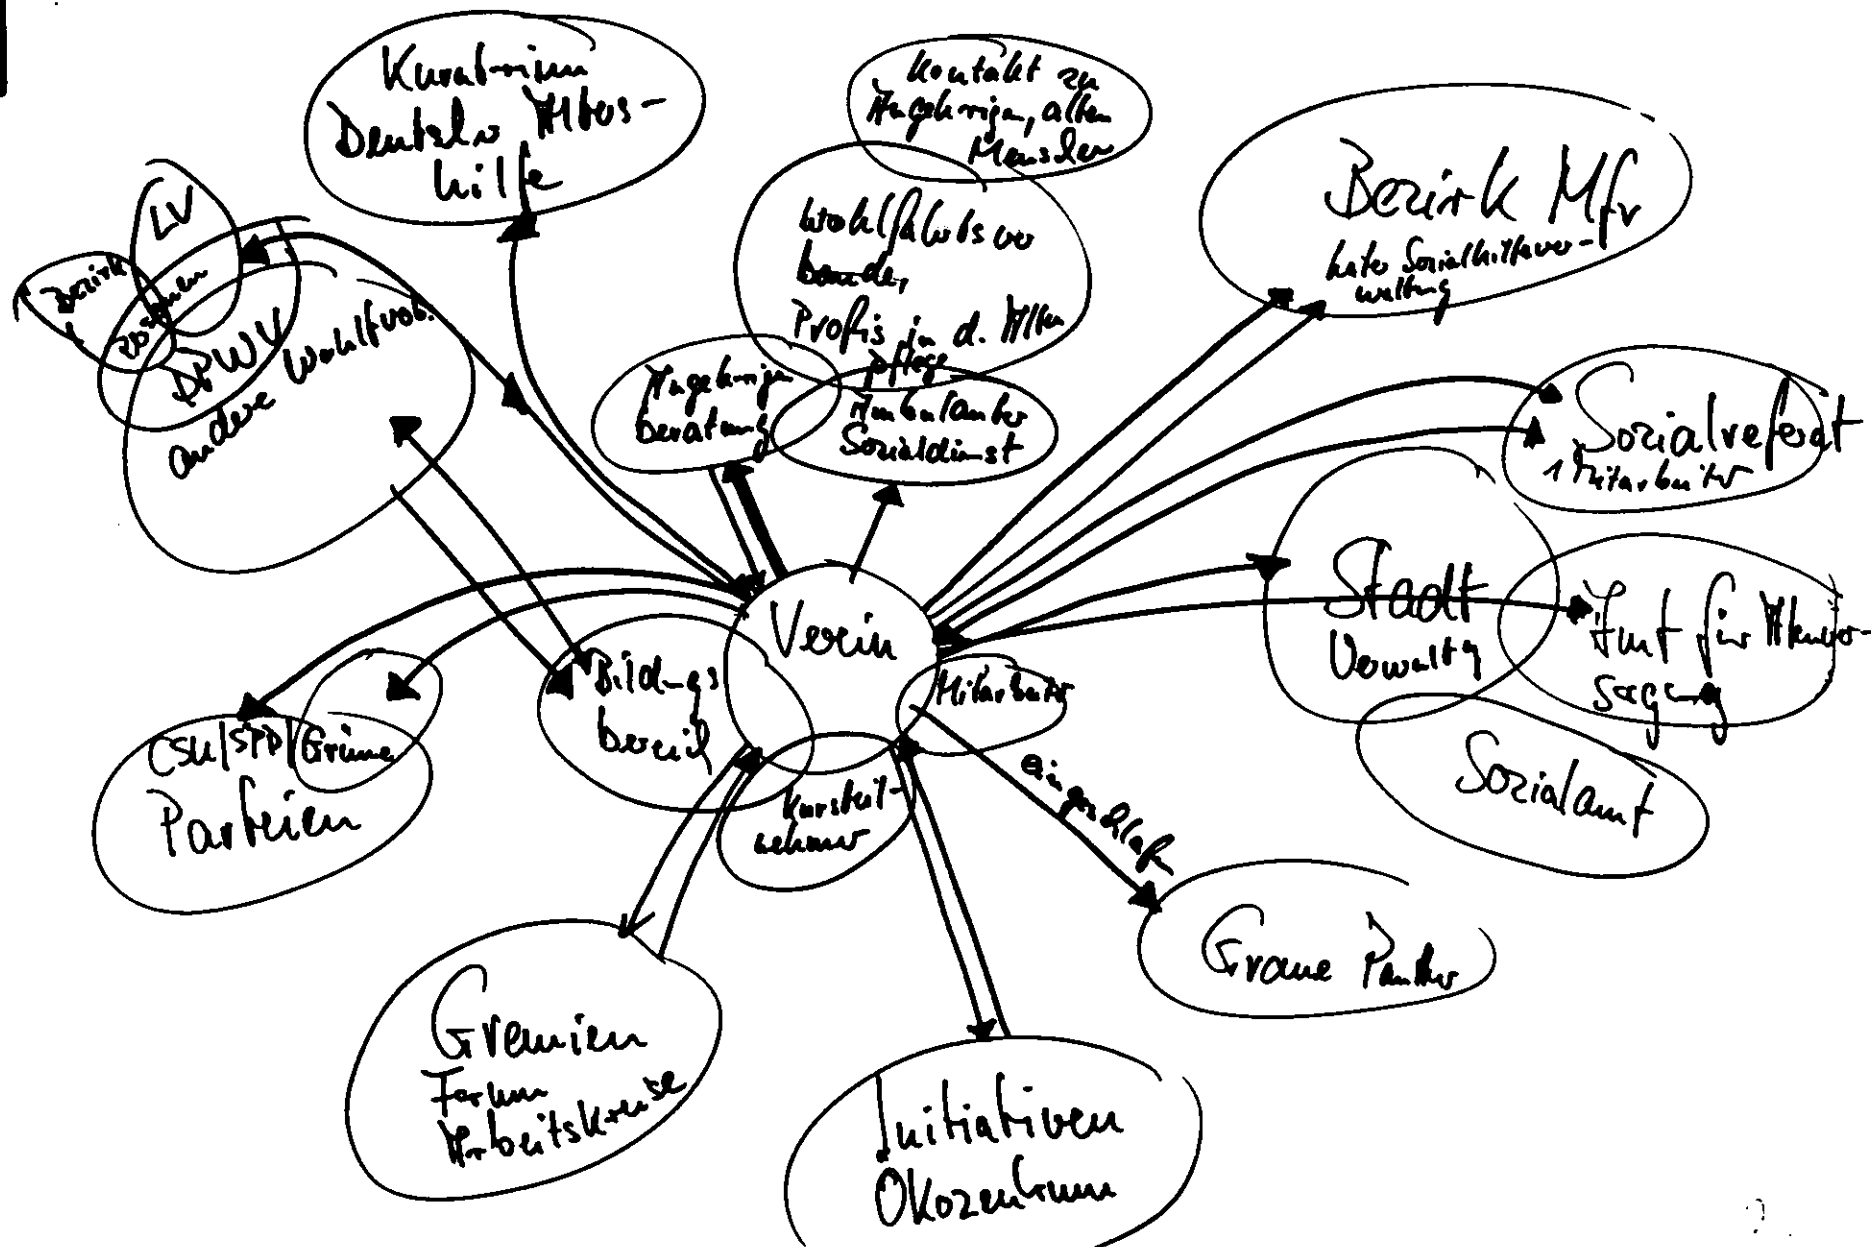 Kuratorium
Deutsche Alters-
hilfe
Kontakt zu
Angehörigen, alten
Menschen
Bezirk Mfr
Sozialhilfever-
waltung
LV
Bezirk
DPWV
andere Wohlfvb.
Wohlfahrtsver
bände,
Profis in d. Alten
pflege
Angehörigen
beratung
Ambulanter
Sozialdienst
Sozialreferat
1 Mitarbeiter
Stadt
Verwaltg
Amt für Altenver-
sorgung
Sozialamt
Verein
Mitarbeiter
Bildungs
bereich
Kursteil-
nehmer
CSU/SPD/Grüne
Parteien
eingeschlafen
Graue Panther
Gremien
Forum
Arbeitskreise
Initiativen
Ökozentrum